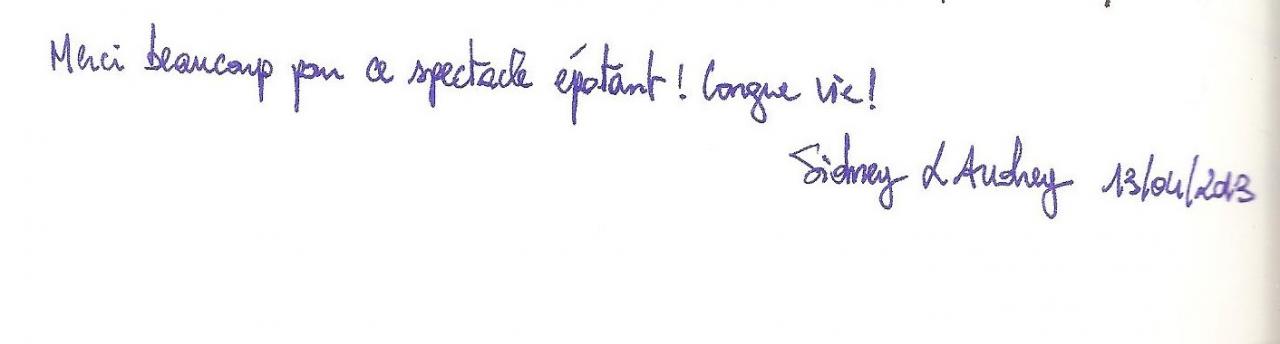 Merci beaucoup pour ce spectacle épatant ! Longue vie !
Sidney & Audrey 13/04/2013